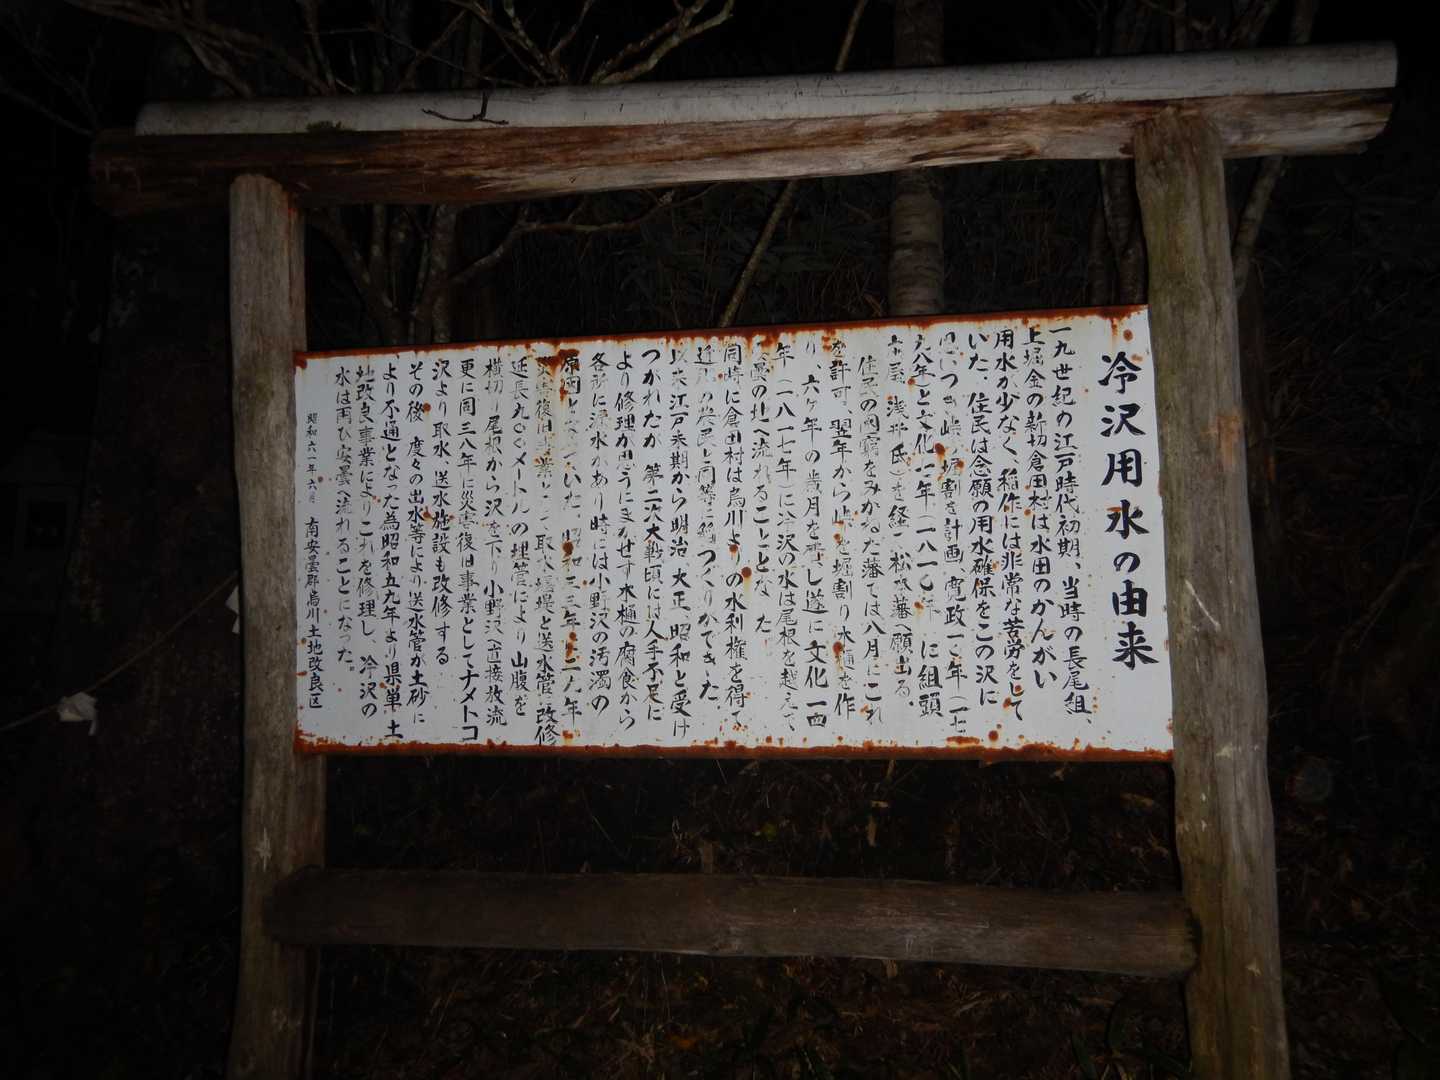 冷沢用水の由来
一九世紀の江戸時代初期、当時の長尾組、
上堀金の新切倉田村は水田のかんがい
用水が少なく、稲作には非常な苦労をして
いた。住民は念願の用水確保をこの沢に
つき峠の堀割を計画、寛政一〇年(一七
九八年)と文化七年(一八一〇年)に組頭
浅井氏)を経、松本藩へ願出る。
住民の困窮をみかねた藩では八月にこれ
を許可、翌年から峠を堀割り木樋を作
り、六ヶ年の歳月を費し遂に文化一四
年(一八一七年)に冷沢の水は尾根を越えて、
安曇の地へ流れることとなった
同時に倉田村は烏川よりの水利権を得て
近在の農民と同等に稲つくりができた
以来江戸末期から明治 大正 昭和と受け
つがれたが 第二次大戦頃には人手不足に
より修理が思うにまかせず木樋の腐食から
各所に漏水があり時には小野沢の汚濁の
原因となっていた。昭和三三年~二九年
災害復旧事業として取水堰堤と送水管に改修
延長九〇〇メートルの埋管により山腹を
横切り尾根から沢を下り小野沢へ直接放流
更に同三八年に災害復旧事業としてナメトコ
沢より取水 送水施設も改修する
その後 度々の出水等により送水管が土砂に
より不通となった為昭和五九年より県単 土
地改良事業によりこれを修理し、冷沢の
水は再び安曇へ流れることになった。
昭和六一年六月 南安曇郡烏川土地改良区